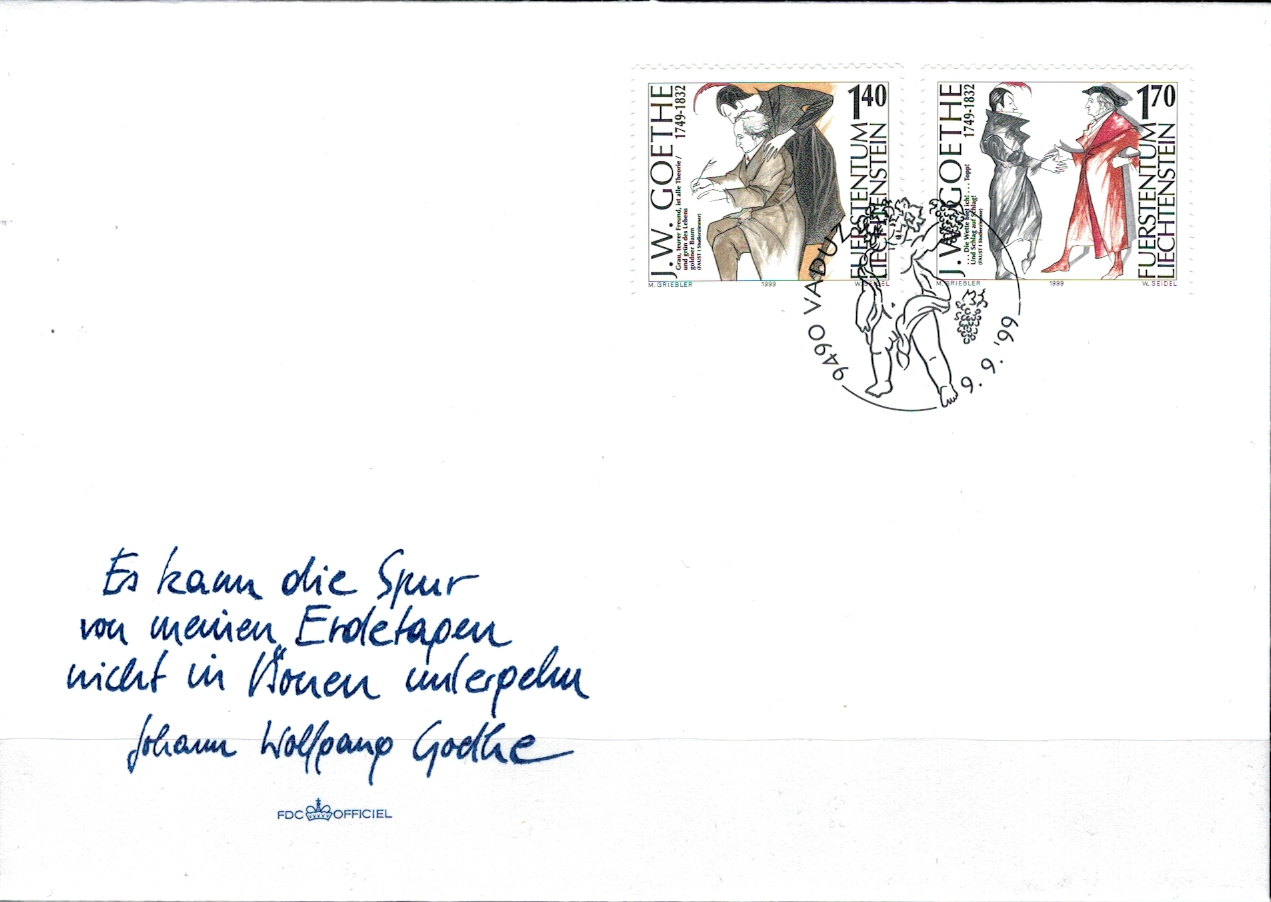 J.W. GOETHE
1749-1832
Grau, teurer Freund, ist alle Theorie /
und grün des Lebens
goldner Baum
(FAUST I Studierzimmer)
140
FUERSTENTUM
LIECHTENSTEIN
M. GRIEBLER 1999 W. SEIDEL
J.W. GOETHE
1749-1832
...Die Wette biet ich!...Topp!
Und Schlag auf Schlag!
(FAUST I Studierzimmer)
170
FUERSTENTUM
LIECHTENSTEIN
M. GRIEBLER 1999 W. SEIDEL
9490 VADUZ
9.9.'99
Es kann die Spur
von meinen Erdetagen
nicht in Äonen untergehn
Johann Wolfgang Goethe
FDC OFFICIEL